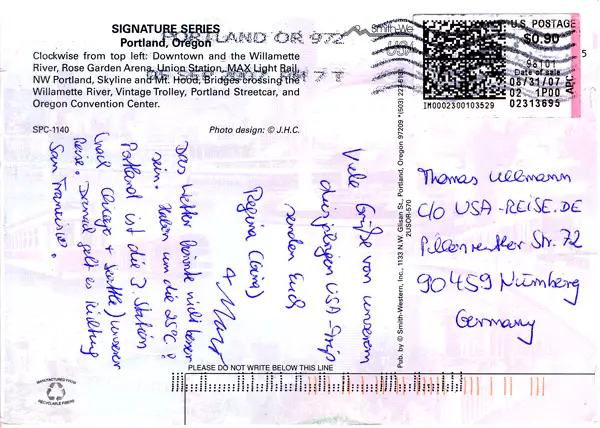 SIGNATURE SERIES
Portland, Oregon
Clockwise from top left: Downtown and the Willamette
River, Rose Garden Arena, Union Station, MAX Light Rail,
NW Portland, Skyline and Mt. Hood, Bridges crossing the
Willamette River, Vintage Trolley, Portland Streetcar, and
Oregon Convention Center.
SPC-1140
Photo design: © J.H.C.
PORTLAND OR 972
U.S. POSTAGE
$0.90
98101
Date of sale
08/31/07
02 1P00
02313695
IM0002300103529
APC
5
USA
Viele Grüße von unserem
diesjährigen USA-Trip
senden Euch
Regina (Gina)
+ Marc
Das Wetter könnte nicht besser
sein. Haben um die 25°C!
Portland ist die 3. Station
(nach Chicago + Seattle) unserer
Reise. Danach geht es Richtung
San Francisco.
Thomas Ullmann
c/o USA-REISE.DE
Str. 72
90459 Nürnberg
Germany
Pub. by © Smith-Western, Inc., 1133 N.W. Glisan St., Portland, Oregon 97209
2USOR-570
PLEASE DO NOT WRITE BELOW THIS LINE
MANUFACTURED FROM
RECYCLABLE FIBERS